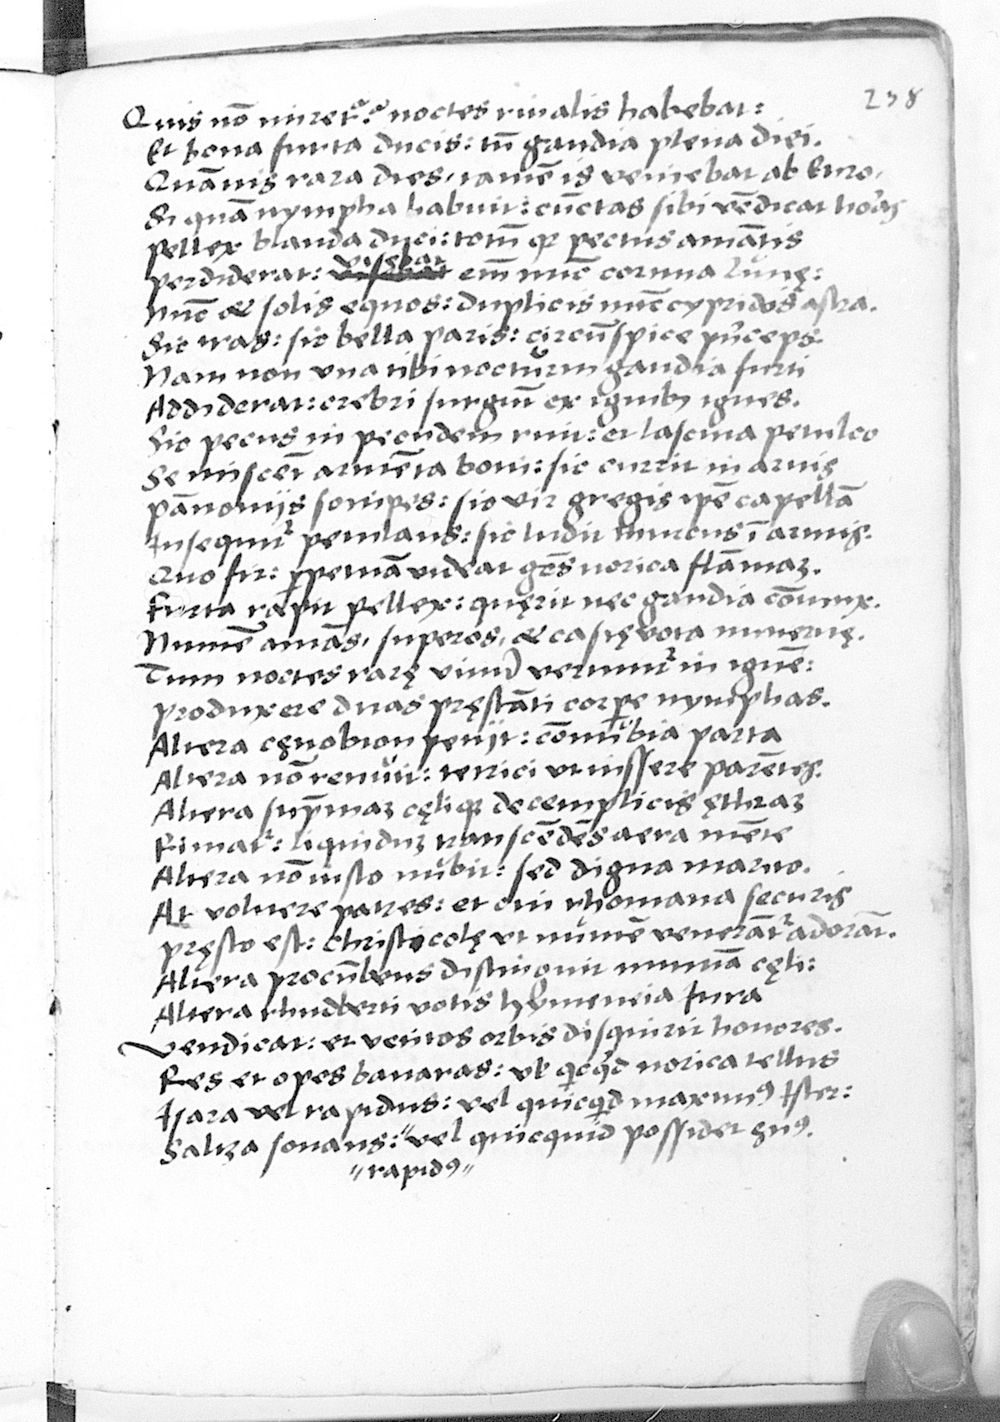 238
Quis nō miret᷑? noctes riualis habebat:
Et bona furta ducis: tū gaudia plena diei.
Quāuis rara dies, tamē is veniebat ab Euro,
Si quā nympha habuit: cūctas sibi vēdicat horas
Pellex blanda duci: totū qȝ pectus amātis
Perdiderat: visebat em̄ nūc cornua lunę:
Nūc & solis equos: duplicis nūc cypridos astra.
Sic tras: sic bella paris: circūspice pn̄ceps.
Nam non vna tibi nocturni gaudia furti
Addiderat: crebri surgūt ex ignibȝ ignes.
Sic pecus in pecudem ruit: et lasciua petulco
Se miscēt armēta boui: sic currit in aruis
Pānonijs sonipes: sic vir gregis ip̄e capellā
Insequit᷑ petulans: sic ludit ī aruis.
Quo fit: ꝑpetuā videat gēs norica flāmaȝ.
Furta rapit pellex: quęrit nec gaudia cōiunx.
Numē amās, superos, & castę vota mineruę.
Tum noctes rarę vertunt᷑ in ignē:
Produxere duas pręstāti corꝑe nymphas.
Altera cęnobion petijt: cōnubia parta
Altera nō renuit: tetrici vt iussere parētes.
Altera sup̄maȝ cęliqȝ decemplicis ęthraȝ
Rimat᷑: liquiduȝ transcēdēs aera mēte
Altera nō iusto nubit: sed digna marito.
At voluere patres: et cui rhomana securis
Pręsto est: christicolę vt numē venerāt᷑ adorāt.
Altera procūbens distinguit munia cęli:
Altera rhudberti votis hymeneia iura
Vendicat: et veteres orbis disquirit honores.
Res et opes bauaras: vt qicqd norica tellus
Isara vel rapidus: vel quicqd maximꝰ Ister:
Saltza sonans: "vel quicquid possidet Enꝰ.
"rapidꝰ"